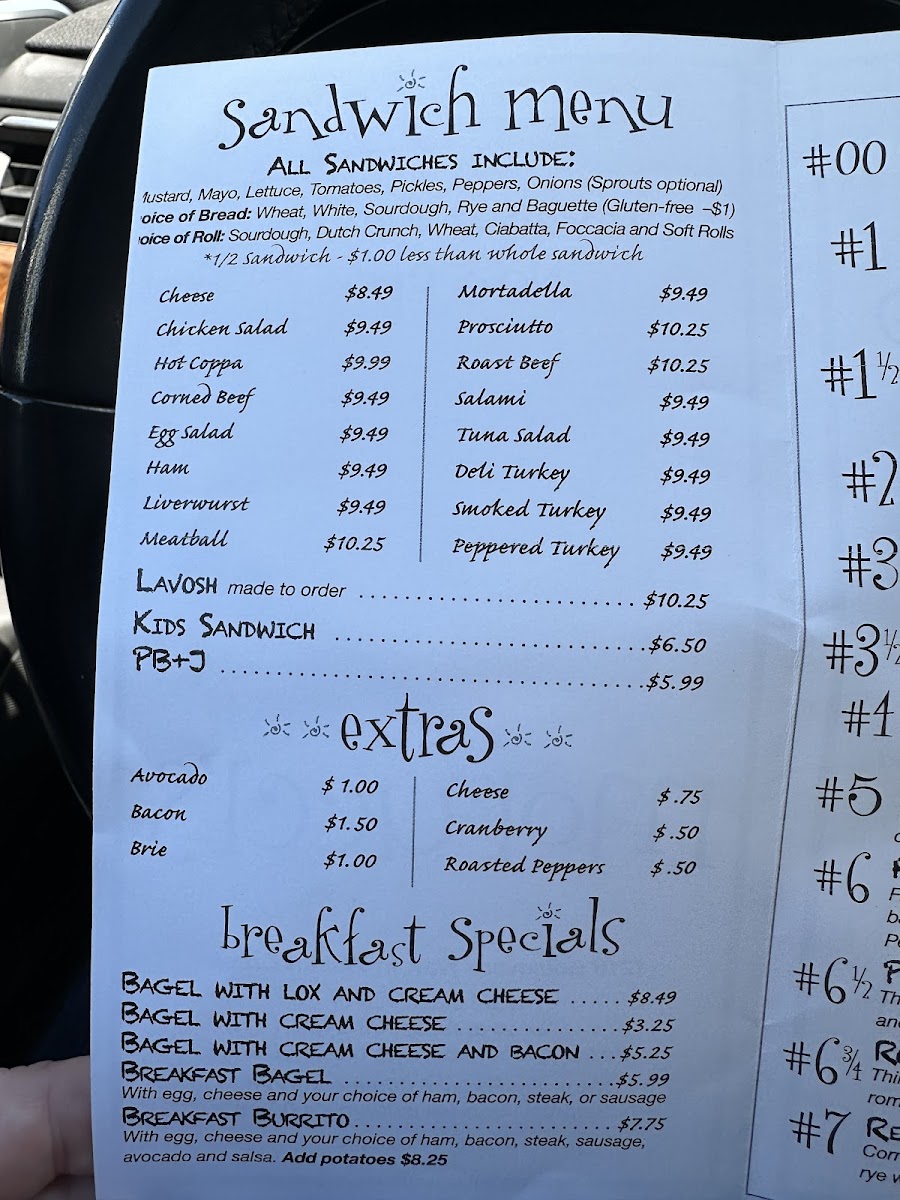 sandwich menu
All Sandwiches include:
Mustard, Mayo, Lettuce, Tomatoes, Pickles, Peppers, Onions (Sprouts optional)
oice of Bread: Wheat, White, Sourdough, Rye and Baguette (Gluten-free –$1)
oice of Roll: Sourdough, Dutch Crunch, Wheat, Ciabatta, Foccacia and Soft Rolls
*1/2 Sandwich - $1.00 less than whole sandwich
Cheese $8.49
Chicken Salad $9.49
Hot Coppa $9.99
Corned Beef $9.49
Egg Salad $9.49
Ham $9.49
Liverwurst $9.49
Meatball $10.25
Mortadella $9.49
Prosciutto $10.25
Roast Beef $10.25
Salami $9.49
Tuna Salad $9.49
Deli Turkey $9.49
Smoked Turkey $9.49
Peppered Turkey $9.49
Lavosh made to order $10.25
Kids Sandwich $6.50
PB+J $5.99
extras
Avocado $1.00
Bacon $1.50
Brie $1.00
Cheese $.75
Cranberry $.50
Roasted Peppers $.50
breakfast specials
Bagel with lox and cream cheese ..... $8.49
Bagel with cream cheese $3.25
Bagel with cream cheese and bacon ... $5.25
Breakfast Bagel $5.99
With egg, cheese and your choice of ham, bacon, steak, or sausage
Breakfast Burrito $7.75
With egg, cheese and your choice of ham, bacon, steak, sausage,
avocado and salsa. Add potatoes $8.25
#00
#1
#1 1/2
#2
#3
#3 1/2
#4
#5
#6
#6 1/2
Th
an
#6 3/4
Thi
rom
#7 Re
Corn
rye w